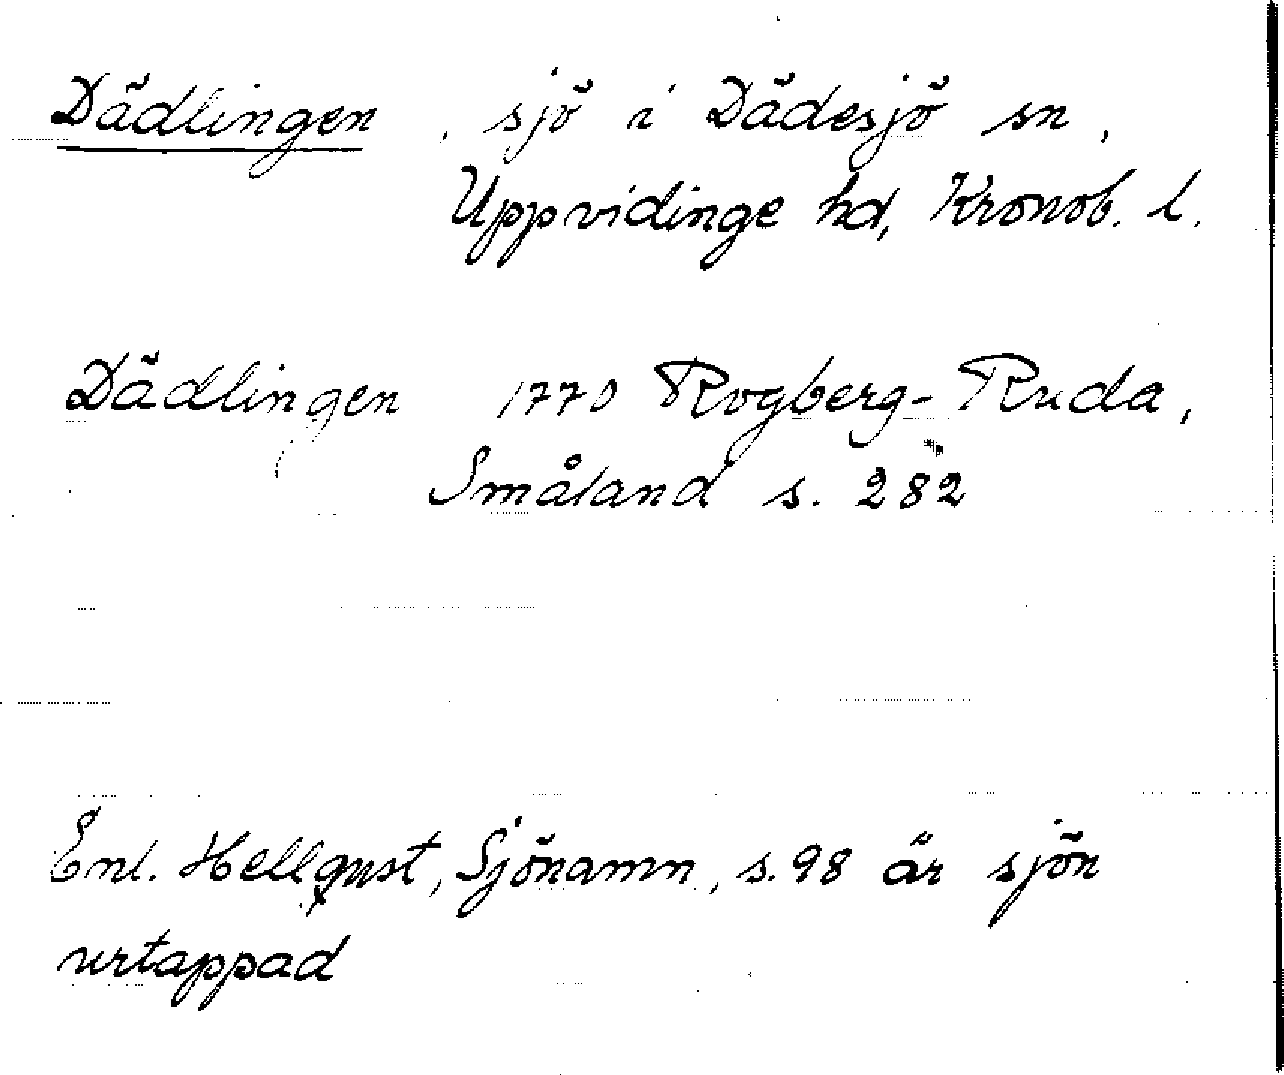 Dädlingen, sjö i Dädesjö sn,
Uppvidinge hd, Kronob. l.
Dädlingen 1770 Rogberg-Ruda,
Småland s. 282
Enl. Hellqust, Sjönamn, s. 98 är sjön
urtappad